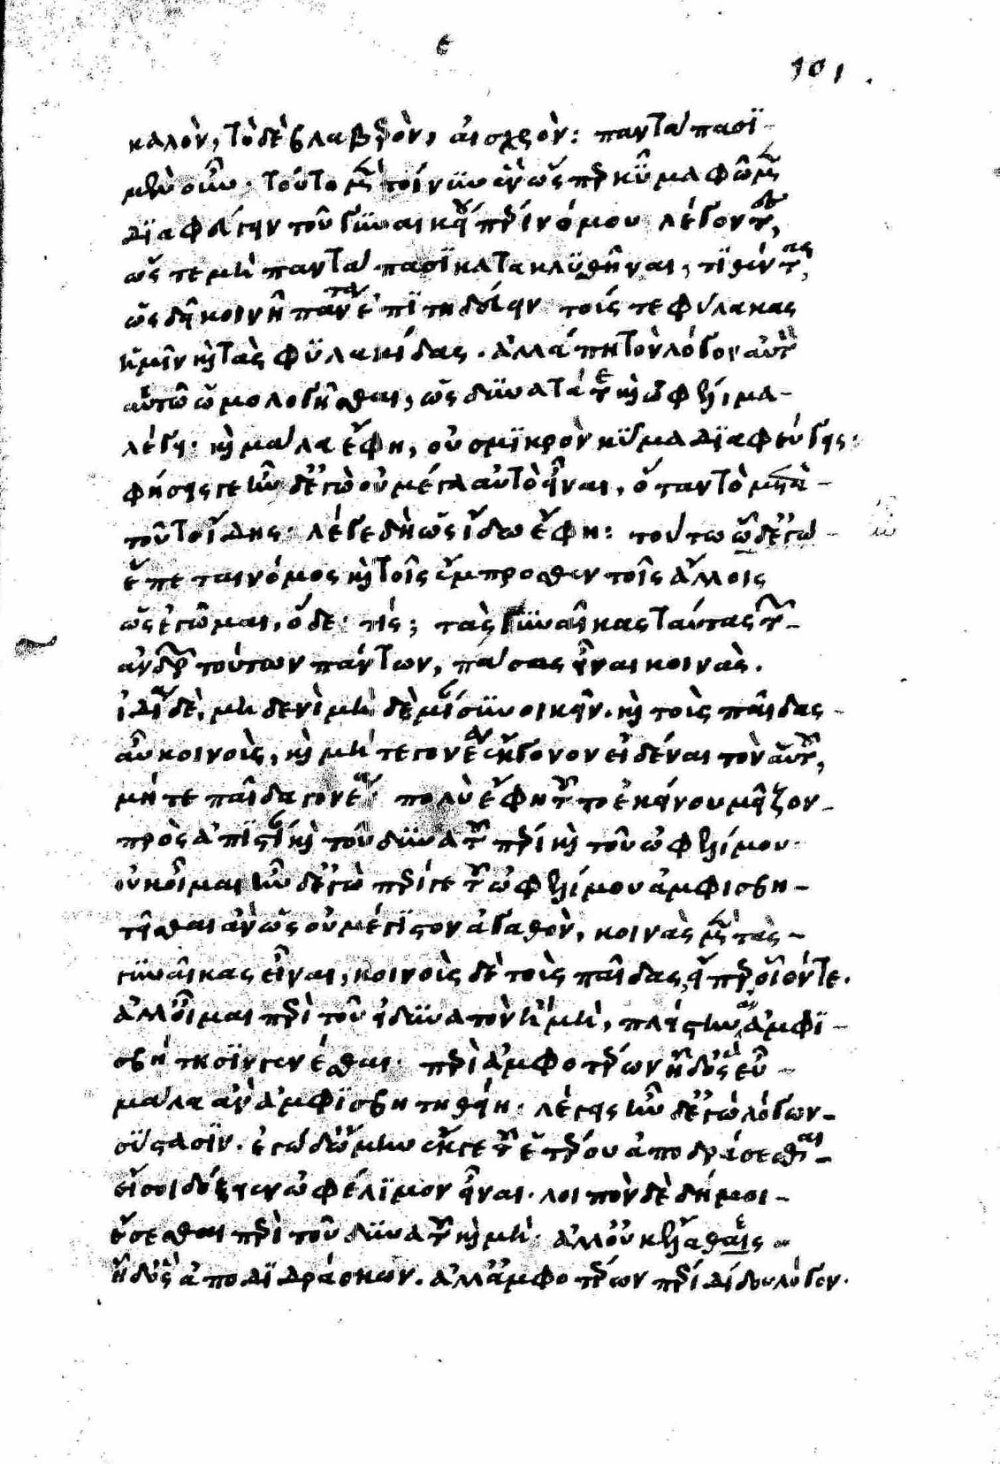 ε
101.
καλὸν, τὸ δὲ βλαβερὸν, αἰσχρόν: παντάπασι
μὲν οὖν. τοῦτο μὲν τοίνυν ἓν ὥσπερ κῦμα φῶμεν
διαφεύγειν τοῦ γυναικείου πέρι νόμου λέγοντες,
ὥστε μὴ παντάπασι κατακλυσθῆναι, τιθέντας
ὡς δεῖ κοινῇ πάντα ἐπιτηδεύειν τούς τε φύλακας
ἡμῖν καὶ τὰς φυλακίδας. ἀλλά πῃ τὸν λόγον αὐτὸν
αὑτῷ ὁμολογεῖσθαι, ὡς δυνατά τε καὶ ὠφέλιμα
λέγει· καὶ μάλα ἔφη, οὐ σμικρὸν κῦμα διαφεύγεις:
φήσεις γε ἦν δ' ἐγὼ οὐ μέγα αὐτὸ εἶναι, ὅταν τὸ μετὰ
τοῦτο ἴδῃς· λέγε δὴ ὡς ἴδω ἔφη: τούτῳ ἦν δ' ἐγώ
ἕπεται νόμος καὶ τοῖς ἔμπροσθεν τοῖς ἄλλοις
ὡς ἐγᾦμαι, ὅδε· τίς; τὰς γυναῖκας ταύτας τῶν
ἀνδρῶν τούτων πάντων, πάσας εἶναι κοινάς.
ἰδίᾳ δὲ, μηδενὶ μηδεμίαν συνοικεῖν. καὶ τοὺς παῖδας
αὖ κοινούς, καὶ μήτε γονέα ἔκγονον εἰδέναι τὸν αὑτοῦ,
μήτε παῖδα γονέα· πολὺ ἔφη τοῦτο ἐκείνου μεῖζον
πρὸς ἀπιστίαν καὶ τοῦ δυνατοῦ πέρι καὶ τοῦ ὠφελίμου·
οὐκ οἶμαι ἦν δ' ἐγὼ περί γε τοῦ ὠφελίμου ἀμφισβη
τεῖσθαι ἂν ὡς οὐ μέγιστον ἀγαθὸν, κοινὰς μὲν τὰς
γυναῖκας εἶναι, κοινοὺς δὲ τοὺς παῖδας, εἴπερ οἷόν τε.
ἀλλ' οἶμαι περὶ τοῦ εἰ δυνατὸν ἢ μὴ, πλείστην ἂν ἀμφι
σβήτησιν γενέσθαι· περὶ ἀμφοτέρων ἦ δ' ὃς εὖ
μάλα ἂν ἀμφισβητηθείη· λέγεις ἦν δ' ἐγὼ λόγων
σύστασιν. ἐγὼ δ' ᾤμην ἔκ γε τοῦ ἑτέρου ἀποδράσεσθαι
εἴ σοι δόξειεν ὠφέλιμον εἶναι. λοιπὸν δὲ δή μοι
ἔσεσθαι περὶ τοῦ δυνατοῦ καὶ μή· ἀλλ' οὐκ ἔλαθες
ἦ δ' ὃς ἀποδιδράσκων. ἀλλ' ἀμφοτέρων πέρι δίδου λόγον.